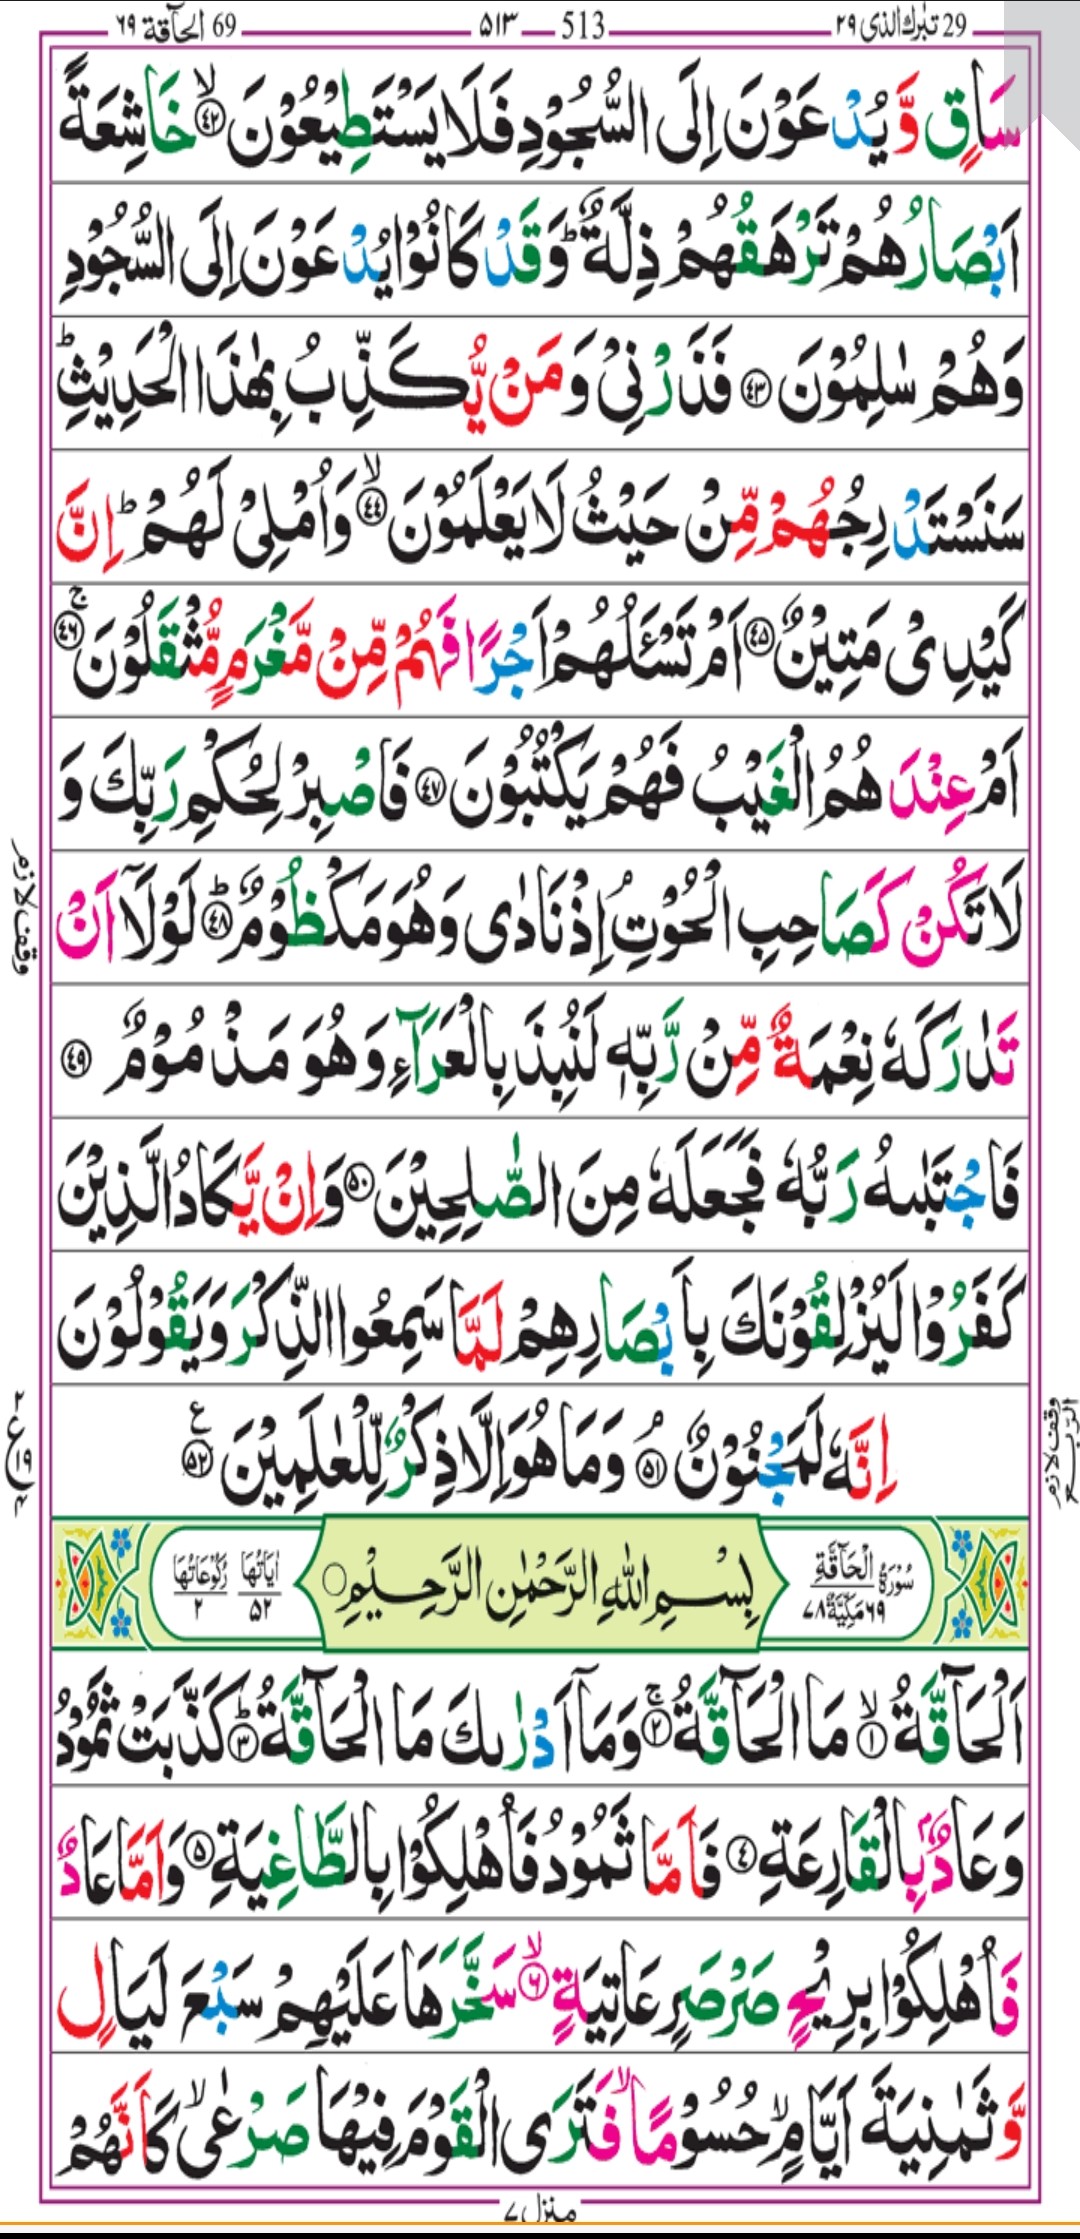 29 تبٰرك الذی ٢٩
513 ٥١٣
69 الحآقة ٦٩
سَاقٍ وَّیُدْعَوْنَ اِلَی السُّجُوْدِ فَلَا یَسْتَطِیْعُوْنَ ۙ﴿۴۲﴾ خَاشِعَةً
اَبْصَارُهُمْ تَرْهَقُهُمْ ذِلَّةٌ ؕ وَقَدْ كَانُوْا یُدْعَوْنَ اِلَی السُّجُوْدِ
وَهُمْ سٰلِمُوْنَ ﴿۴۳﴾ فَذَرْنِیْ وَمَنْ یُّكَذِّبُ بِهٰذَا الْحَدِیْثِ ؕ
سَنَسْتَدْرِجُهُمْ مِّنْ حَیْثُ لَا یَعْلَمُوْنَ ۙ﴿۴۴﴾ وَاُمْلِیْ لَهُمْ ؕ اِنَّ
كَیْدِیْ مَتِیْنٌ ﴿۴۵﴾ اَمْ تَسْـَٔلُهُمْ اَجْرًا فَهُمْ مِّنْ مَّغْرَمٍ مُّثْقَلُوْنَ ۚ﴿۴۶﴾
اَمْ عِنْدَهُمُ الْغَیْبُ فَهُمْ یَكْتُبُوْنَ ﴿۴۷﴾ فَاصْبِرْ لِحُكْمِ رَبِّكَ وَ
لَا تَكُنْ كَصَاحِبِ الْحُوْتِ ۘ اِذْ نَادٰی وَهُوَ مَكْظُوْمٌ ؕ﴿۴۸﴾ لَوْلَاۤ اَنْ
وقف لازم
تَدٰرَكَهٗ نِعْمَةٌ مِّنْ رَّبِّهٖ لَنُبِذَ بِالْعَرَآءِ وَهُوَ مَذْمُوْمٌ ﴿۴۹﴾
فَاجْتَبٰىهُ رَبُّهٗ فَجَعَلَهٗ مِنَ الصّٰلِحِیْنَ ﴿۵۰﴾ وَاِنْ یَّكَادُ الَّذِیْنَ
كَفَرُوْا لَیُزْلِقُوْنَكَ بِاَبْصَارِهِمْ لَمَّا سَمِعُوا الذِّكْرَ وَیَقُوْلُوْنَ
اِنَّهٗ لَمَجْنُوْنٌ ۘ﴿۵۱﴾ وَمَا هُوَ اِلَّا ذِكْرٌ لِّلْعٰلَمِیْنَ ﴿۵۲﴾ ع
وقف لازم
الربع
٢ ع ١٩ ٤
سُوْرَةُ الْحَآقَّةِ
٦٩ مَكِّیَّةٌ ٧٨
بِسْمِ اللّٰهِ الرَّحْمٰنِ الرَّحِیْمِ ○
اٰیَاتُهَا ٥٢
رُكُوْعَاتُهَا ٢
اَلْحَآقَّةُ ۙ﴿۱﴾ مَا الْحَآقَّةُ ۚ﴿۲﴾ وَمَاۤ اَدْرٰىكَ مَا الْحَآقَّةُ ؕ﴿۳﴾ كَذَّبَتْ ثَمُوْدُ
وَعَادٌۢ بِالْقَارِعَةِ ﴿۴﴾ فَاَمَّا ثَمُوْدُ فَاُهْلِكُوْا بِالطَّاغِیَةِ ﴿۵﴾ وَاَمَّا عَادٌ
فَاُهْلِكُوْا بِرِیْحٍ صَرْصَرٍ عَاتِیَةٍ ۙ﴿۶﴾ سَخَّرَهَا عَلَیْهِمْ سَبْعَ لَیَالٍ
وَّثَمٰنِیَةَ اَیَّامٍ ۙ حُسُوْمًا ۙ فَتَرَی الْقَوْمَ فِیْهَا صَرْعٰی ۙ كَاَنَّهُمْ
منزل ٧